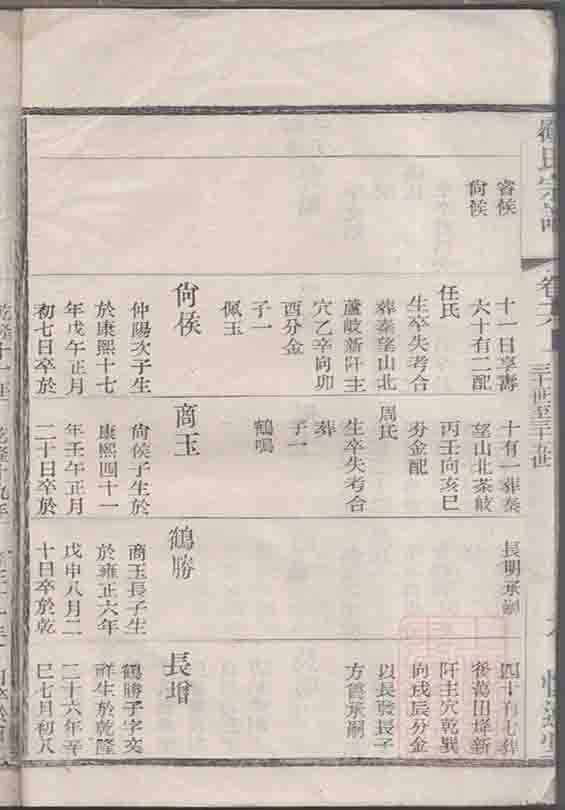 氏宗譜
卷六上
三十一世至三十五世
睿候
尙候
十一日享壽
六十有二配
任氏
生卒失考合
葬秦望山北
蘆岐新阡主
穴乙辛向卯
酉分金
子一
佩玉
尙候
仲陽次子生
於康熙十七
年戊午正月
初七日卒於
十有一葬秦
望山北茶岐
丙壬向亥巳
分金配
周氏
生卒失考合
葬
子一
鶴鳴
商玉
尙候子生於
康熙四十一
年壬午正月
二十日卒於
長明承嗣
鶴勝
商玉長子生
於雍正六年
戊申八月二
十日卒於乾
四十有七葬
後萬田烽新
阡主穴乾巽
向戌辰分金
以長發長子
方德承嗣
長增
鶴勝子字文
祥生於乾隆
二十六年辛
巳七月初八